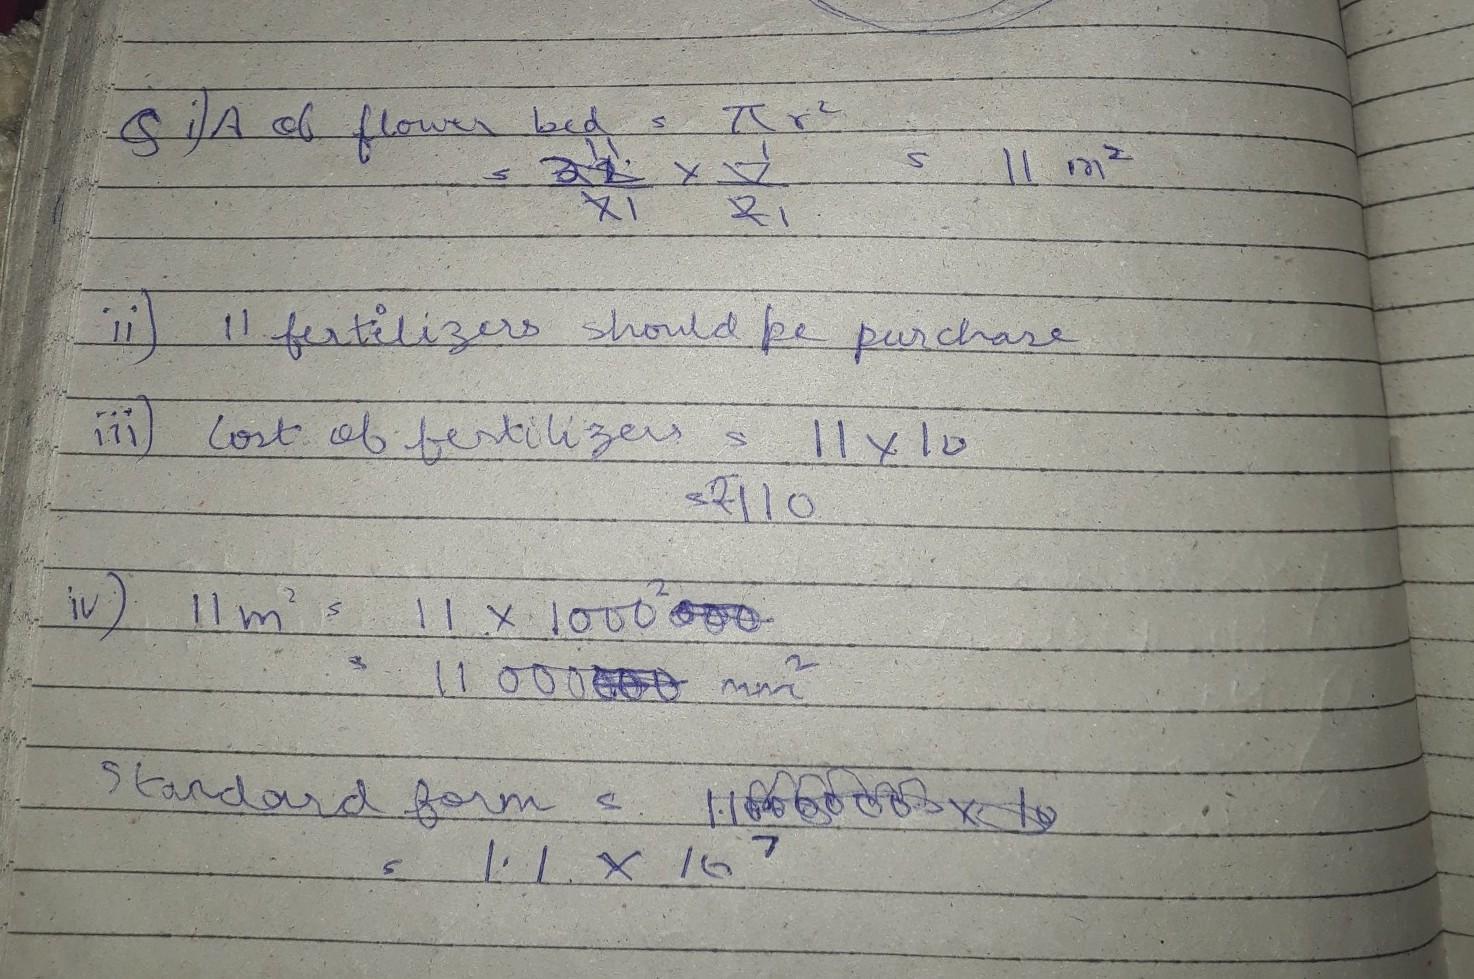 Q i) A of flower bed = πr²
= 22/7 × 7/2 = 11 m²
11 1
1 1
ii) 11 fertilizers should be purchase
iii) Cost of fertilizers = 11 × 10
= ₹110
iv) 11m² = 11 × 1000²
= 11 000 mm²
Standard form =
= 1.1 × 10⁷